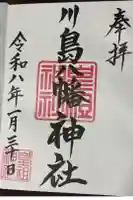 奉拝
川島八幡神社
令和八年一月三十日